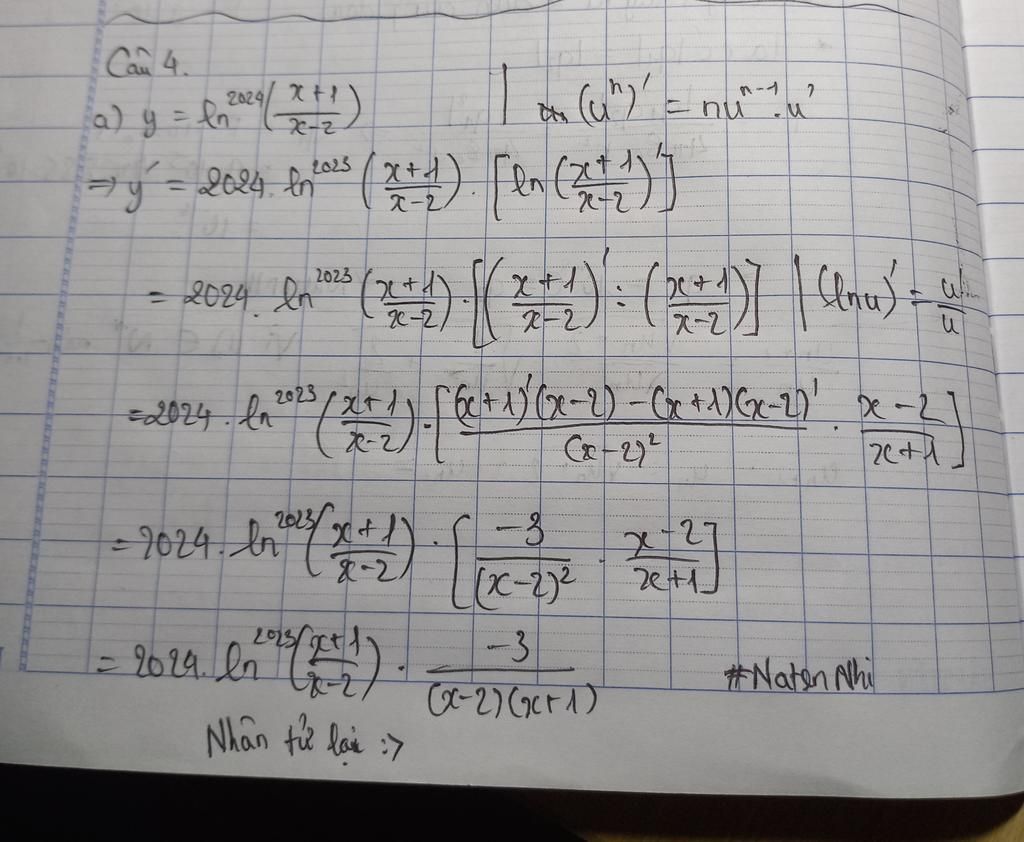 Câu 4.
a) y = ln^2024 ((x+1)/(x-2)) | (u^n)' = nu^(n-1) . u'
=> y' = 2024. ln^2023 ((x+1)/(x-2)) . [ln ((x+1)/(x-2))']
= 2024. ln^2023 ((x+1)/(x-2)) . [((x+1)/(x-2))' : ((x+1)/(x-2))] | (lnu)' = u'/u
= 2024 . ln^2023 ((x+1)/(x-2)) . [((x+1)'(x-2) - (x+1)(x-2)')/(x-2)^2 . (x-2)/(x+1)]
= 2024. ln^2023 ((x+1)/(x-2)) . [-3/(x-2)^2 . (x-2)/(x+1)]
= 2024. ln^2023 ((x+1)/(x-2)) . -3/((x-2)(x+1))
#NatenNhi
Nhân tử lại :>